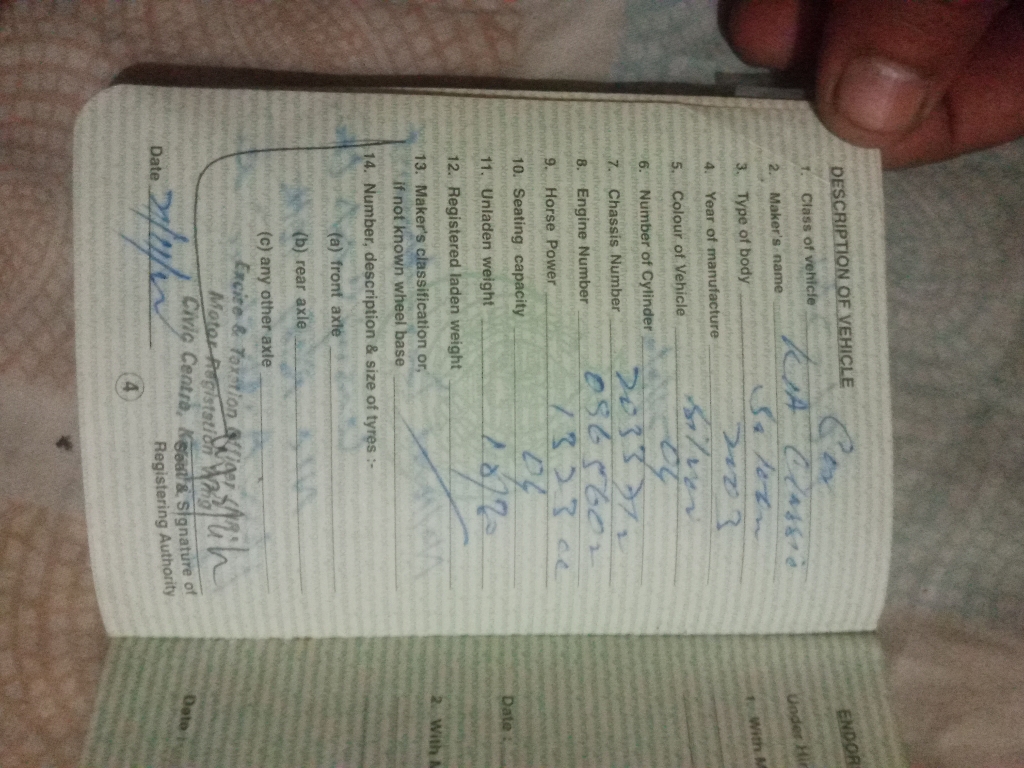 DESCRIPTION OF VEHICLE
1. Class of vehicle Car
2. Maker's name KIA Classic
3. Type of body Saloon
4. Year of manufacture 2003
5. Colour of Vehicle Silver
6. Number of Cylinder 04
7. Chassis Number
8. Engine Number
9. Horse Power 1323 cc
10. Seating capacity 04
11. Unladen weight
12. Registered laden weight
13. Maker's classification or,
if not known wheel base
14. Number, description & size of tyres :-
(a) front axle
(b) rear axle
(c) any other axle
Excie & Taxation Officer
Motor Registration Wing
Civic Centre,
Seal & Signature of
Registering Authority
Date
4
ENDOR
Under Hir
1. With M
Date :
2. With M
Date :